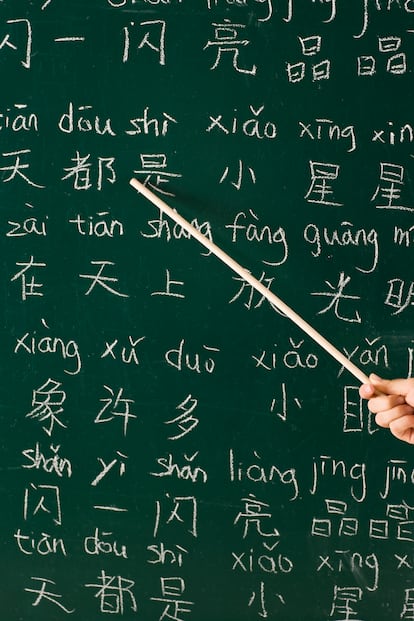 闪 一 闪 亮 晶 晶
tiān dōu shì xiǎo xīng xin
天 都 是 小 星 星
zài tiān shàng fàng guāng
在 天 上 放 光 明
xiàng xǔ duō xiǎo yǎn
象 许 多 小 眼
shǎn yì shǎn liàng jīng jīng
闪 一 闪 亮 晶 晶
tiān dōu shì xiǎo xīng
天 都 是 小 星 星